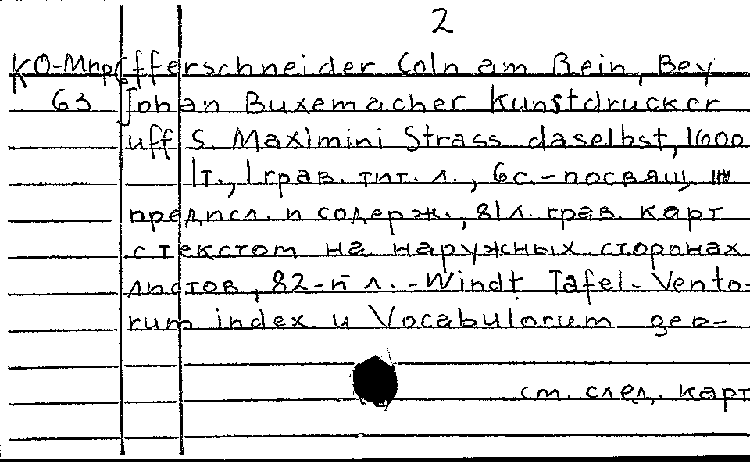 2
КО-Мпр/ fferschneider Coln am Rein, Bey
63 Johan Buxemacher Kunstdrucker
uff S. Maximini Strass daselbst, 1600
1т., 1 грав. тит. л., 6с. - посвящ.,
предисл. и содерж., 81л. грав. карт
с текстом на наружных сторонах
листов, 82-й л. - Windt Tafel - Vento-
rum index и Vocabulorum geo-
см. след. карт